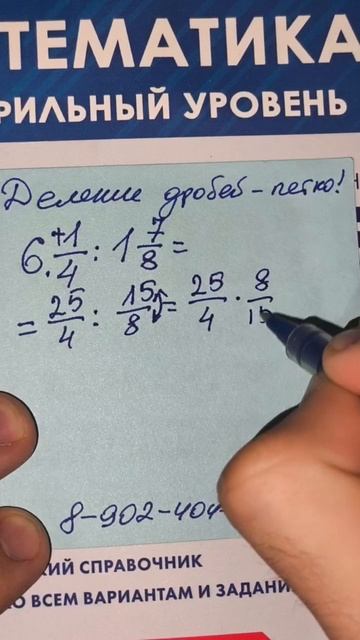 ТЕМАТИКА
РИЛЬНЫЙ УРОВЕНЬ
Деление дробей - легко!
6 · +1/4 : 1 7/8 =
= 25/4 : 15/8 = 25/4 · 8/15
8-902-404
КИЙ СПРАВОЧНИК
О ВСЕМ ВАРИАНТАМ И ЗАДАНИ